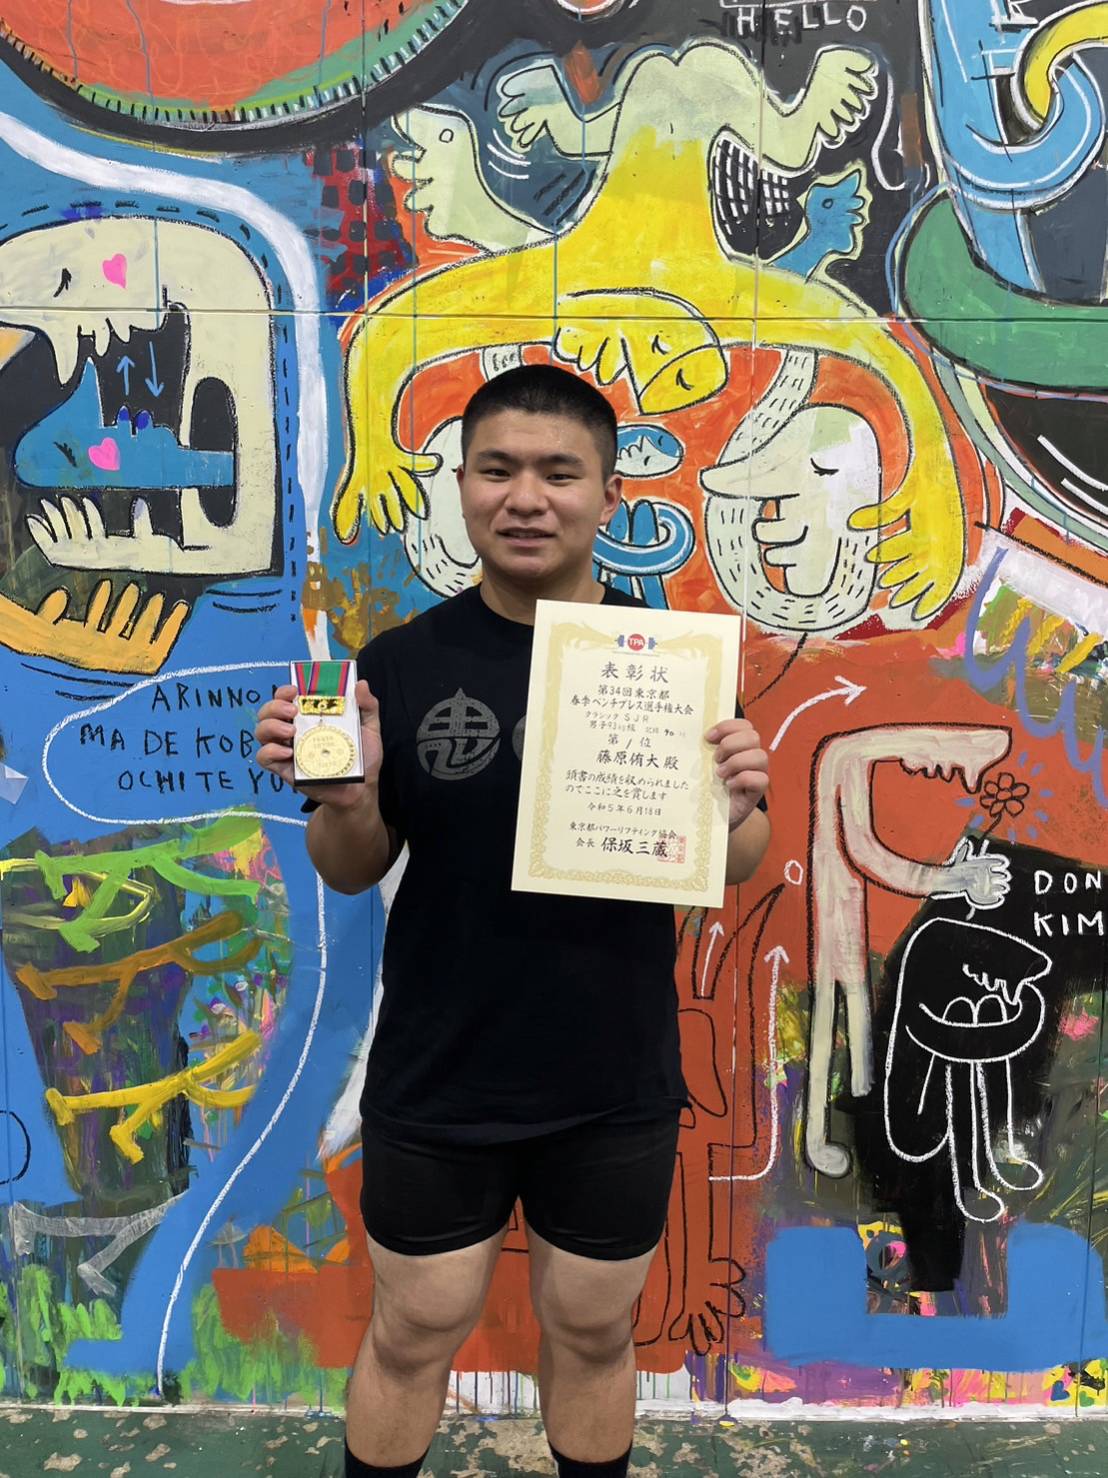 HELLO
ARINNO
MA DE KOB
OCHITE YU
TPA
表彰状
第34回東京都
春季ベンチプレス選手権大会
クラシック SJR
男子93kg級 記録 90 kg
第 1 位
藤原侑大 殿
頭書の成績を収められました
のでここに之を賞します
令和5年6月18日
東京都パワーリフティング協会
会長 保坂三蔵
DON
KIM